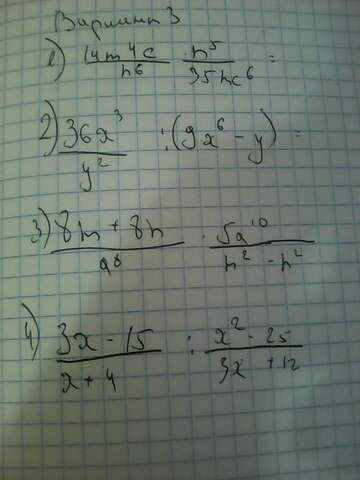 Вариант 3
1) 14m⁴c / n⁶ · n⁵ / 35nc⁶ =
2) 36x³ / y² : (9x⁶ - y) =
3) 8m + 8n / a⁸ · 5a¹⁰ / n² - n²
4) 3x - 15 / x + 4 : x² - 25 / 3x + 12